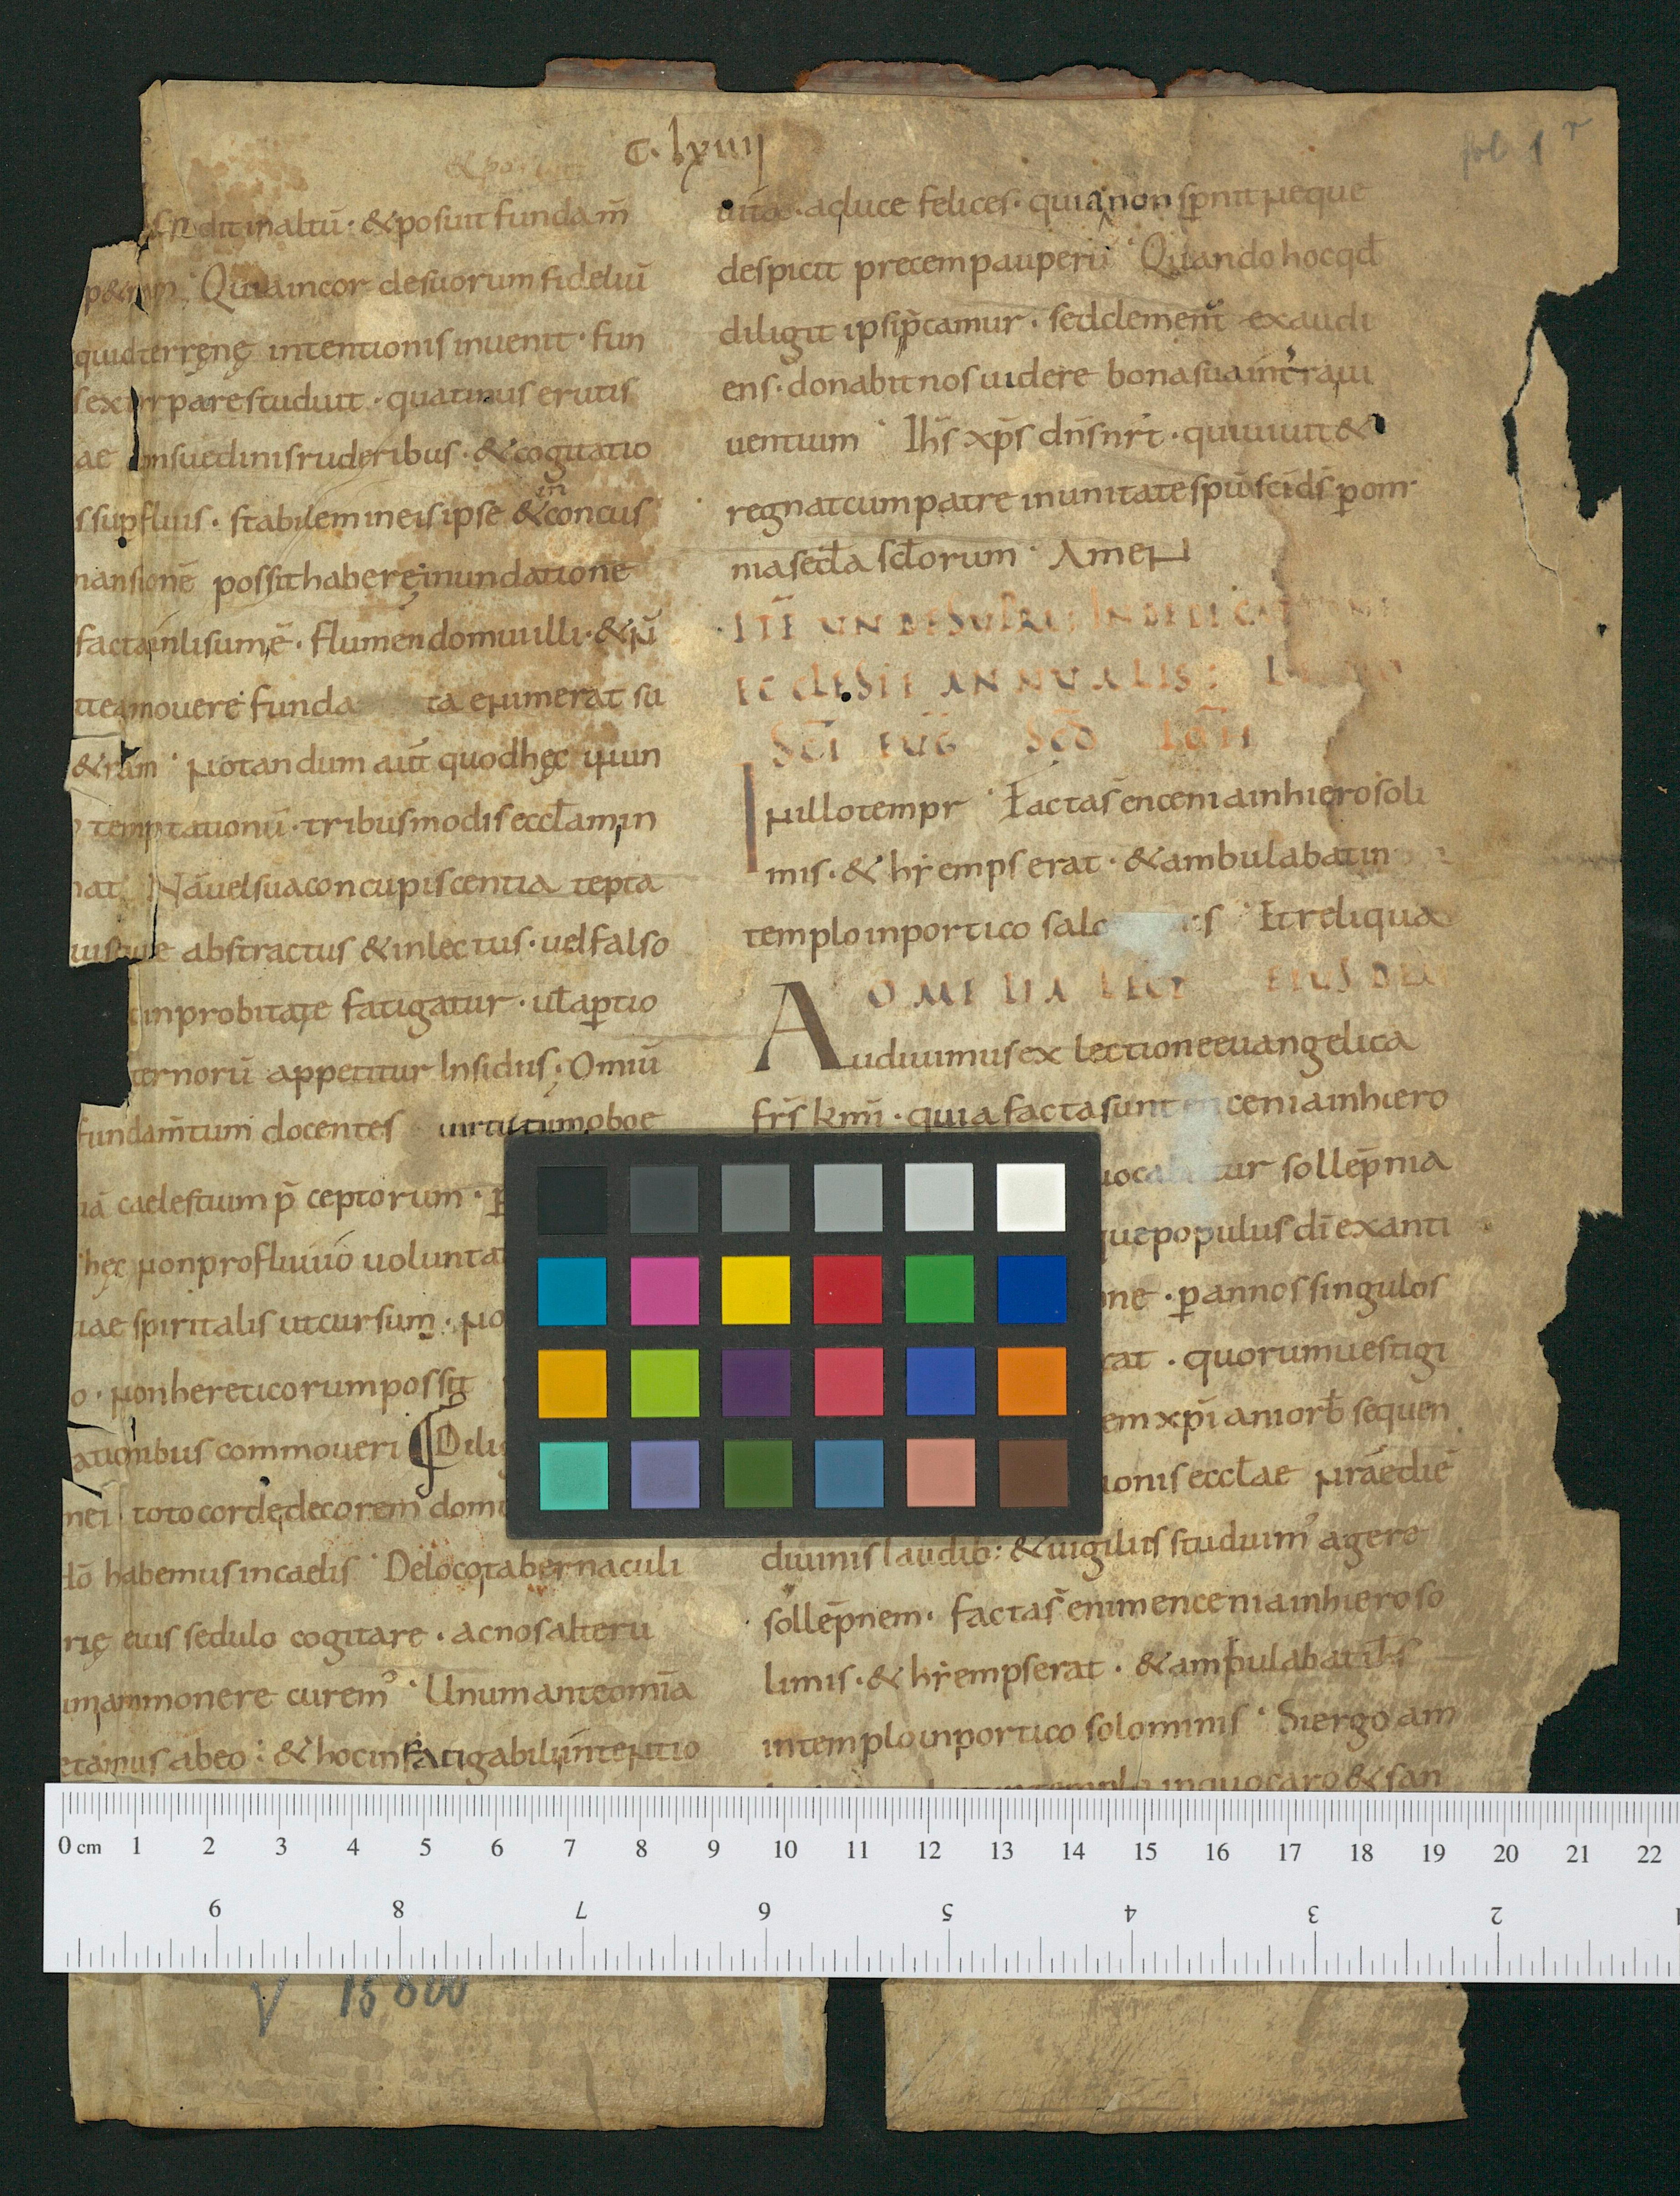 C. lxiiii
fol. 1 r
dit in altū · & posuit fundam̄
p&ram · Quia in cor de suorum fideliū
quid terrenę intentionis inuenit · fun
s exirpare studuit · quatinus erutis
ae onsuedinis ruderibus · & cogitatio
s supfluis · stabilem in eis ipse & in concus
mansionē possit habere ę inundatione
facta inlisum ē · flumen domui illi · & n̄
it eam ouere funda ta enim erat su
& ram · Notandum aūt quod hęc inun
temptationū · tribus modis eccl̄am in
nat Nā uel sua concupiscentia tēpta
uisque abstractus & inlectus · uel falso
inprobitate fatigatur · ul̄ aptio
ternorū appetitur insidiis · Omiū
fundam̄tum docentes uirtutum oboe
iā caelestium p̄ceptorum · p
hęc non profluuio uolunta
uae spiritalis ut cursum · no
o · non hereticorum poss&
ationibus commoueri Dilig
mei toto corde decorem dom
dō habemus in caelis · De loco tabernaculi
rię eius sedulo cogitare · ac nos alteru
im ammonere curem' · Unum ante omīa
etamus ab eo : & hoc infatigabili intentio
uita · ac luce felices · quia non spnit neque
despicit precem pauperū · Quando hoc qd̄
diligit ipsi p̄camur · sed clemen̄t exaudi
ens · donabit nos uidere bona sua in t'ra ui
uentium · Ihs̄ xp̄s dn̄s nr̄t · qui uiuit &
regnat cum patre in unitate spū sc̄i ds̄ p om
nia secl̄a scl̄orum · Amen
ITĒ UNDE SUPRA IN DEDICATIONE
ECCLESIE ANNUALIS :
SCĪ EUG SCD̄ IOĀN
In illo tempr · Facta s̄ encenia in hierosoli
mis · & hiemps erat · & ambulabat in
templo in portico salo is · Et reliqua
OMELIA LECT EIUSDEM
Audiuimus ex lectione euangelica
fr̄s km̄i · quia facta sunt encenia in hiero
uocabatur sollēpnia
que populus dī ex anti
one · p annos singulos
rat · quorum uestigi
em xpī amorē sequen
ionis eccl̄ae nrāe diē
diuinis laudib; & uigiliis studuim' agere
sollēpnem · facta s̄ enim encenia in hieroso
limis · & hiemps erat · & ambulabat ih̄s
in templo in portico solominis · Si ergo am
in templo in quo caro & san
0 cm 1 2 3 4 5 6 7 8 9 10 11 12 13 14 15 16 17 18 19 20 21 22
9 8 7 6 5 4 3 2 1
V 15800